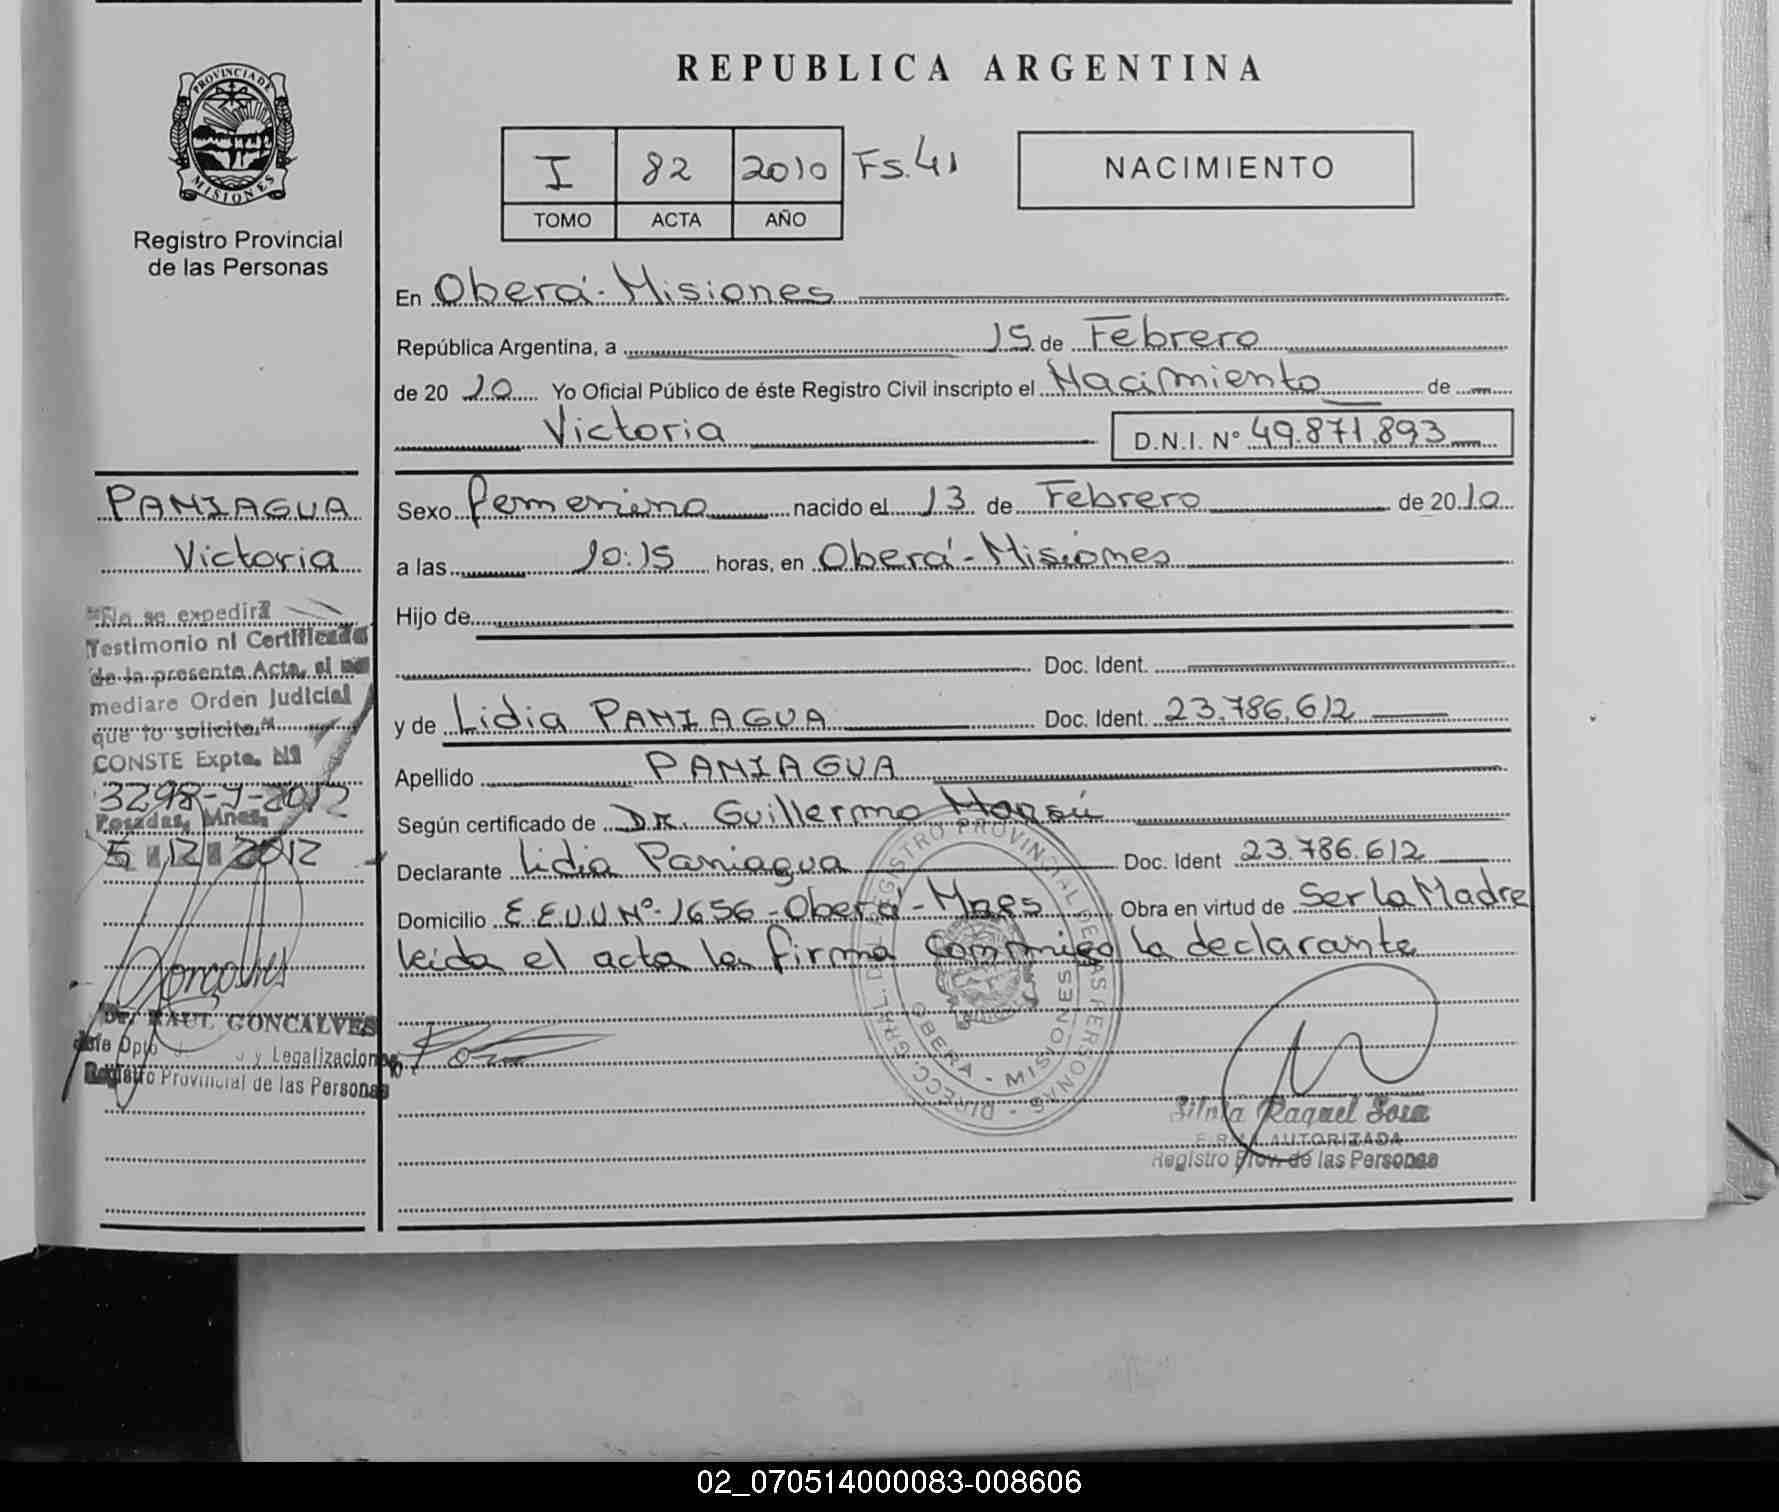 REPUBLICA ARGENTINA
PROVINCIA DE
MISIONES
Registro Provincial
de las Personas
I 82 2010 Fs. 41
TOMO ACTA AÑO
NACIMIENTO
En Oberá - Misiones
República Argentina, a 15 de Febrero
de 20 10 Yo Oficial Público de éste Registro Civil inscripto el Nacimiento de
Victoria D.N.I. Nº 49.871.893
PANIAGUA
Victoria
Sexo femenino nacido el 13 de Febrero de 2010
a las 10:15 horas, en Oberá - Misiones
Hijo de
Doc. Ident.
y de Lidia PANIAGUA Doc. Ident. 23.786.612
Apellido PANIAGUA
Según certificado de Dr. Guillermo
Declarante Lidia Paniagua Doc. Ident 23.786.612
Domicilio E.E.U.U Nº 1656 - Oberá - Mnes Obra en virtud de Ser la Madre
leida el acta la firma conmigo la declarante
"No se expedirá
Testimonio ni Certificado
de la presente Acta, si no
mediare Orden Judicial
que lo solicite."
CONSTE Expte. Nº
3298-J-2012
Posadas, Mnes.
5 12 2012
Dr. RAUL GONCALVES
Jefe Dpto y Legalizaciones
Registro Provincial de las Personas
DIRECC. GRAL. DEL REGISTRO PROVINCIAL DE LAS PERSONAS
OBERA - MISIONES
Silvia Raquel Sosa
FIRMA AUTORIZADA
Registro Prov. de las Personas
02_070514000083-008606